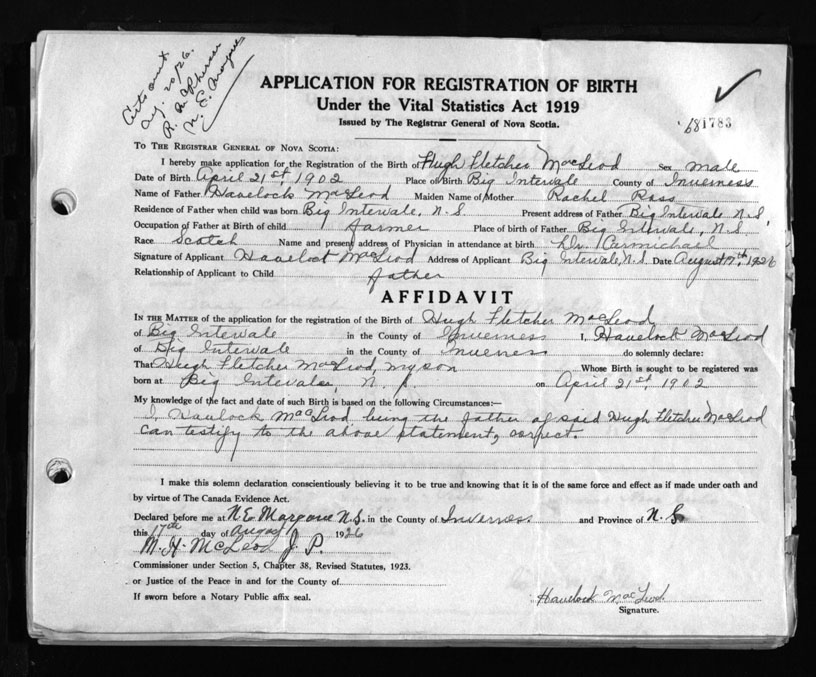 Aug. 20/26.
N. E. Margaree
APPLICATION FOR REGISTRATION OF BIRTH
Under the Vital Statistics Act 1919
Issued by The Registrar General of Nova Scotia.
681783
To The Registrar General of Nova Scotia:
I hereby make application for the Registration of the Birth of Hugh Fletcher MacLeod Sex Male
Date of Birth April 21st, 1902 Place of Birth Big Intervale County of Inverness
Name of Father Havelock MacLeod Maiden Name of Mother Rachel Ross
Residence of Father when child was born Big Intervale, N.S. Present address of Father Big Intervale N.S.
Occupation of Father at Birth of child farmer Place of birth of Father Big Intervale, N.S.
Race Scotch Name and present address of Physician in attendance at birth Dr. Carmichael
Signature of Applicant Havelock MacLeod Address of Applicant Big Intervale, N.S. Date August 17th, 1926
Relationship of Applicant to Child father
AFFIDAVIT
In the Matter of the application for the registration of the Birth of Hugh Fletcher MacLeod
of Big Intervale in the County of Inverness I, Havelock MacLeod
of Big Intervale in the County of Inverness do solemnly declare:
That Hugh Fletcher MacLeod, my son Whose Birth is sought to be registered was
born at Big Intervale, N.S. on April 21st, 1902
My knowledge of the fact and date of such Birth is based on the following Circumstances:—
I, Havelock MacLeod being the father of said Hugh Fletcher MacLeod
can testify to the above statement, correct.
I make this solemn declaration conscientiously believing it to be true and knowing that it is of the same force and effect as if made under oath and
by virtue of The Canada Evidence Act.
Declared before me at N.E. Margaree N.S. in the County of Inverness and Province of N.S.
this 17th day of August 1926
M. H. McLeod J. P.
Commissioner under Section 5, Chapter 38, Revised Statutes, 1923.
or Justice of the Peace in and for the County of
If sworn before a Notary Public affix seal.
Havelock MacLeod
Signature.